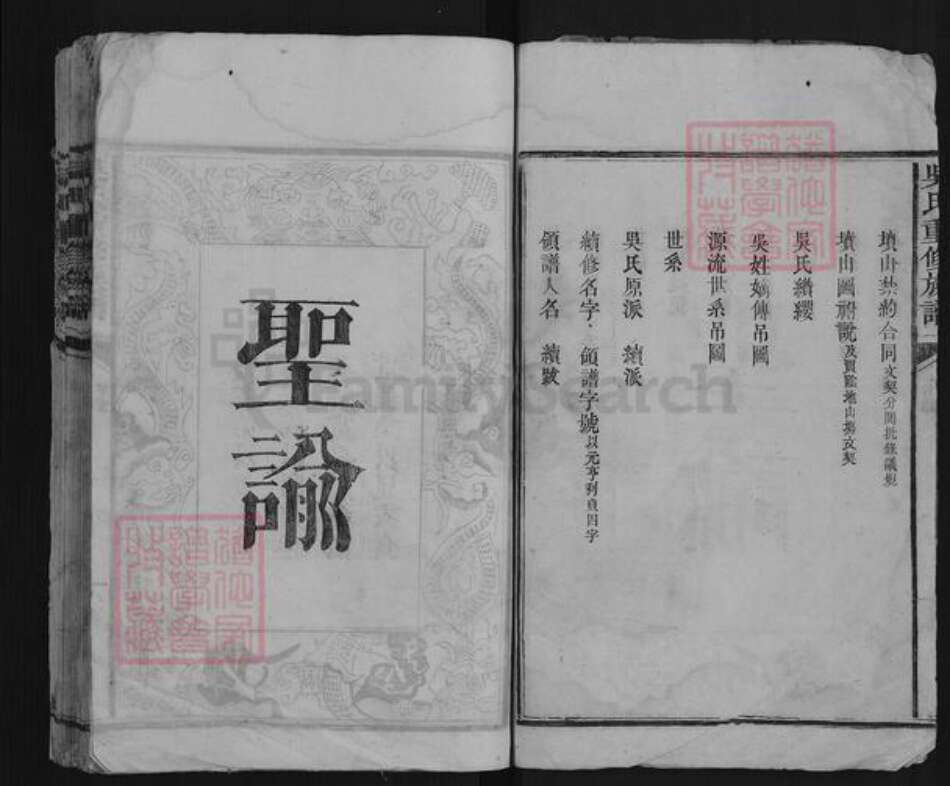 吳氏重修族譜
墳山禁約合同文契分關批發議規
墳山圖附說及買賒地山塲文契
吳氏纉纓
吳姓嫡傳吊圖
源流世系吊圖
世系
吳氏原派 續派
續修名字、領譜字號以元亨利貞四字
領譜人名 續跋
聖諭
FamilySearch